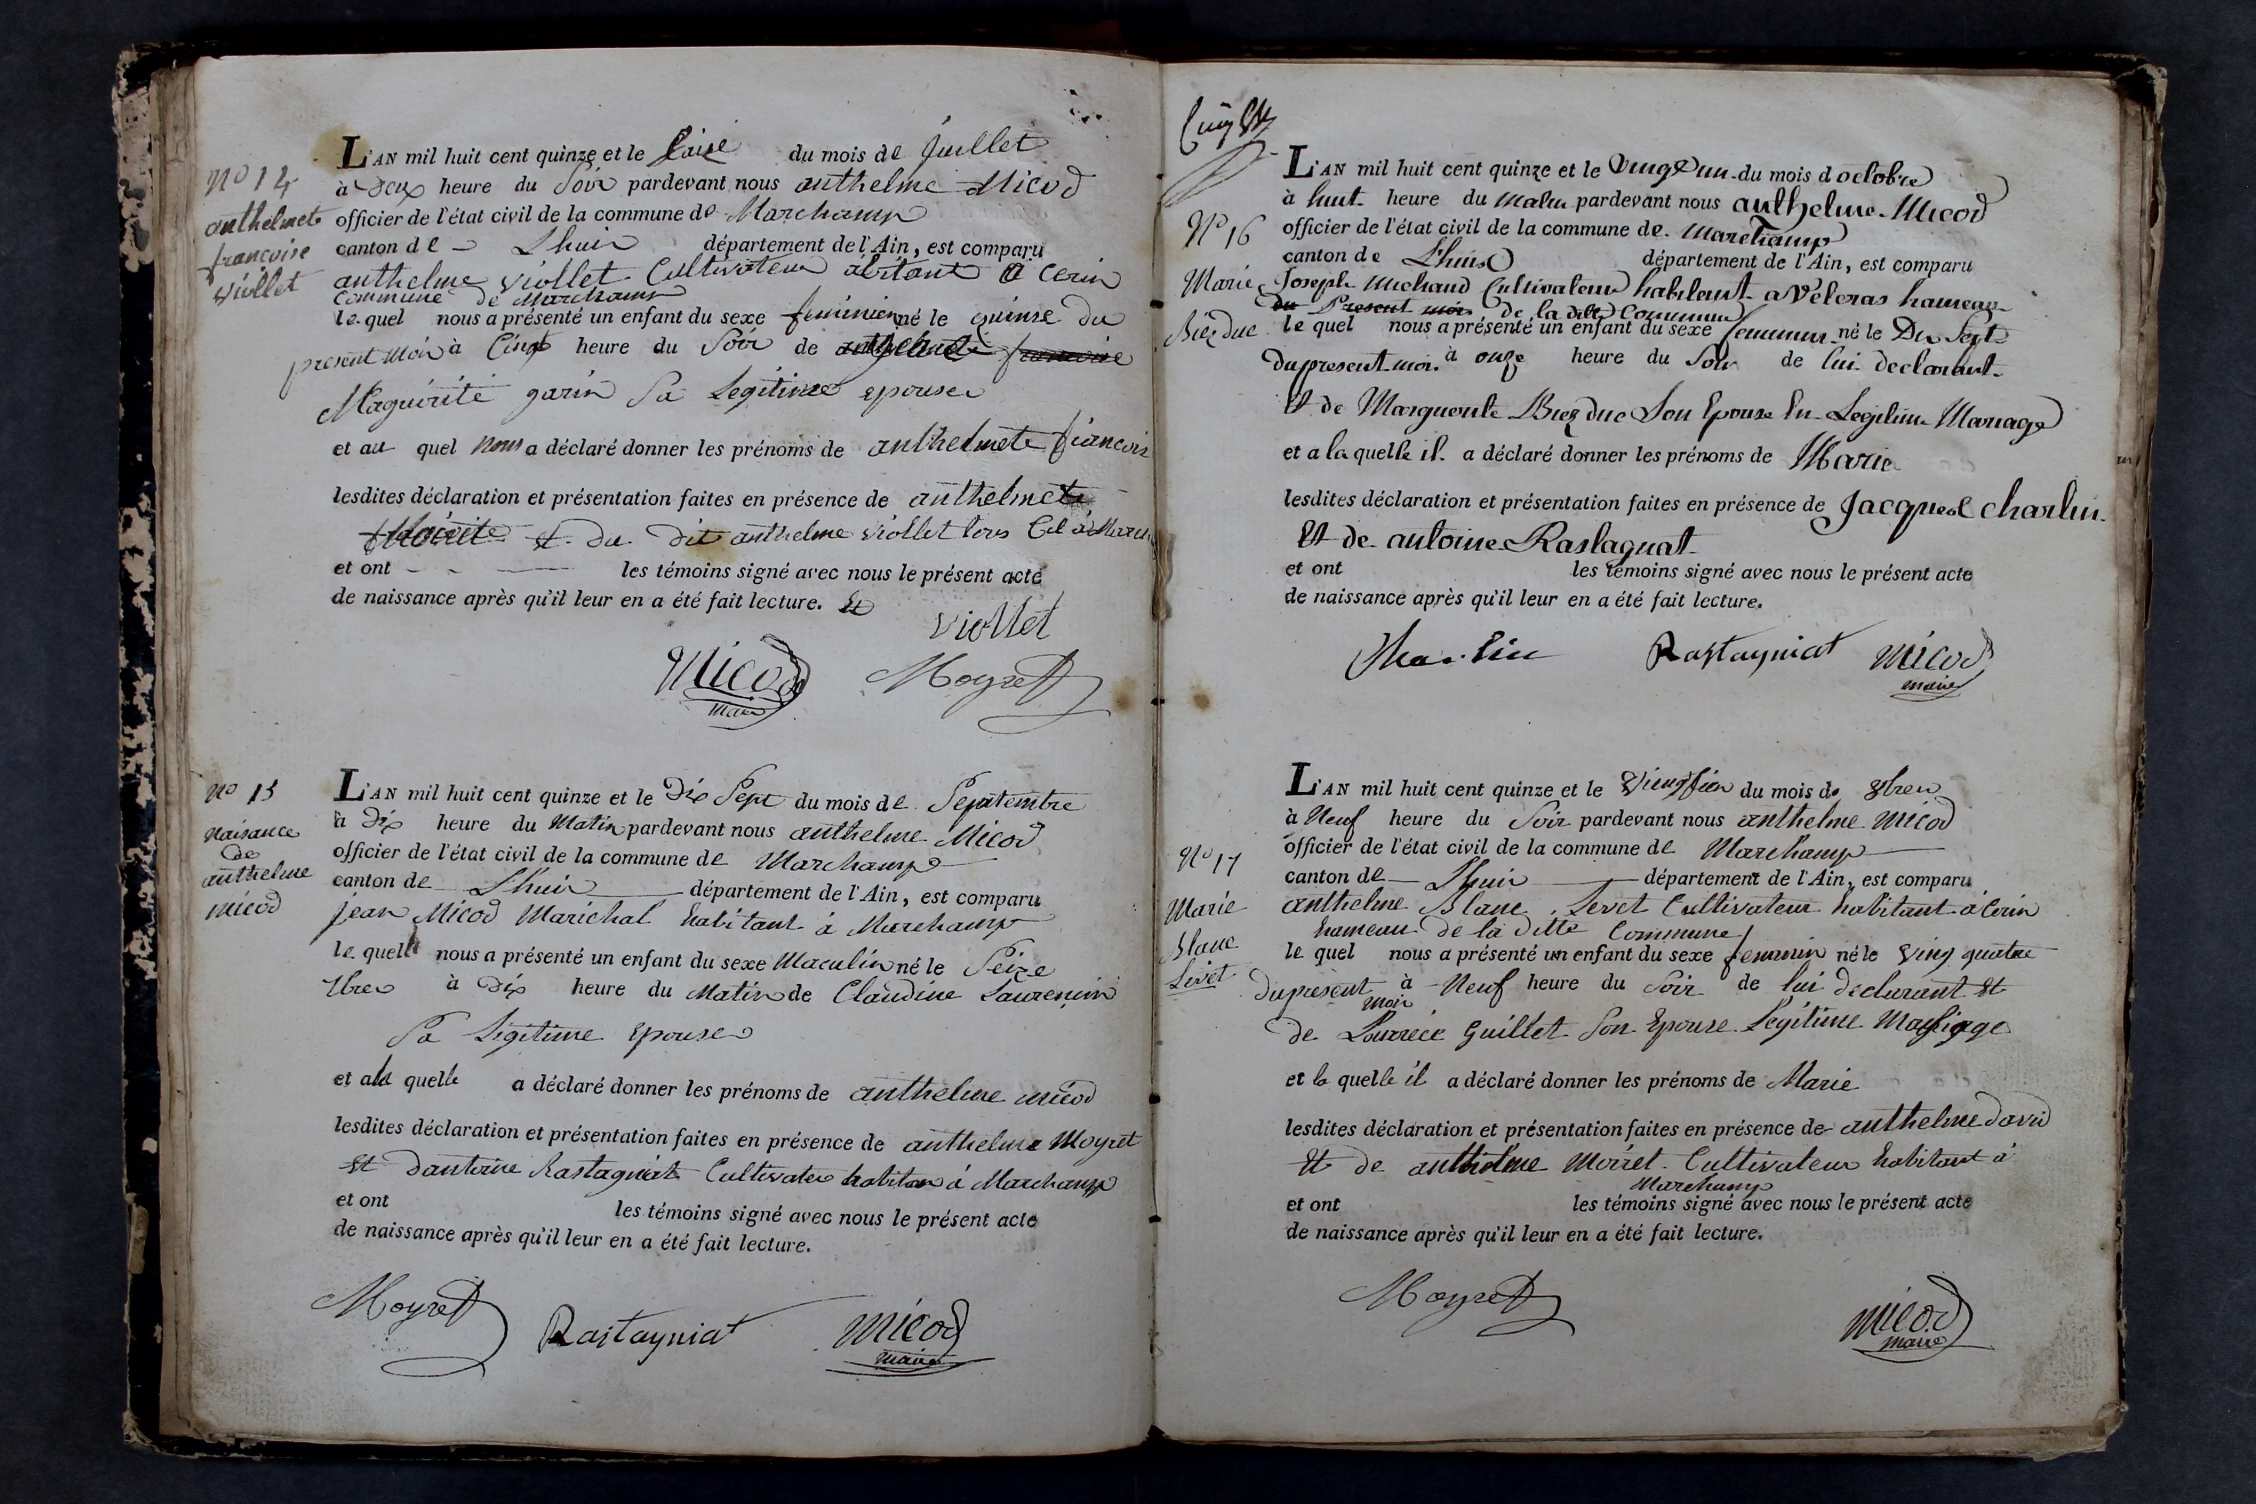 No 14
anthelmete
francoise
viollet
L'AN mil huit cent quinze et le Saise du mois de Juillet
à deux heure du Soir pardevant nous anthelme Micod
officier de l'état civil de la commune de Marchamp
canton de Lhuis département de l'Ain, est comparu
anthelme viollet Cultivateur abitant a Cerin
Commune de Marchamp
le quel nous a présenté un enfant du sexe feminien né le quinse du
present Mois à Cinq heure du Soir de anthelmete francoise
Maguérite garin Sa Legitime epouse
et au quel nous a déclaré donner les prénoms de anthelmete francois
lesdites déclaration et présentation faites en présence de anthelme
Moirete et du dit anthelme viollet tous Cel a March
et ont les témoins signé avec nous le présent acte
de naissance après qu'il leur en a été fait lecture. Et
viollet
Micod Moyret
maire
No 15
naisance
de
anthelme
micod
L'AN mil huit cent quinze et le Dix Sept du mois de Septembre
à dix heure du Matin pardevant nous anthelme Micod
officier de l'état civil de la commune de Marchamp
canton de Lhuis département de l'Ain, est comparu
jean Micod Marichal habitant à Marchamp
le quell nous a présenté un enfant du sexe Maculin né le Seize
7bre à dix heure du Matin de Claudine Laurencin
Sa Ligitime epouse
et ala quelle a déclaré donner les prénoms de anthelme micod
lesdites déclaration et présentation faites en présence de anthelme Moyret
et dantoine Rastagniat Cultivateu habitan à Marchamp
et ont les témoins signé avec nous le présent acte
de naissance après qu'il leur en a été fait lecture.
Moyret Rastagniat micod
maire
No 16
Marie
Biezduc
L'AN mil huit cent quinze et le Vingt un du mois d octobre
à huit heure du Matin pardevant nous anthelme Micod
officier de l'état civil de la commune de Marchamp
canton de Lhuis département de l'Ain, est comparu
Joseph Michaud Cultivateur habitant a Veleras hameau
du Present mois de la ditte Commune
le quel nous a présenté un enfant du sexe feminin né le Dix Sept
du present moi à onze heure du Soir de lui declarant
Et de Marguerite Biezduc Son Epouse En Legitime Mariage
et a la quelle il a déclaré donner les prénoms de Marie
lesdites déclaration et présentation faites en présence de Jacques Charlin
Et de antoine Rastagnat
et ont les témoins signé avec nous le présent acte
de naissance après qu'il leur en a été fait lecture.
Charlin Rastagniat micod
maire
No 17
Marie
Blanc
Levet
L'AN mil huit cent quinze et le du mois de 8bre
à Neuf heure du Soir pardevant nous anthelme micod
officier de l'état civil de la commune de Marchamp
canton de Lhuis département de l'Ain, est comparu
anthelme Blanc Levet Cultivateur habitant à Cerin
hameau de la ditte Commune
le quel nous a présenté un enfant du sexe feminin né le Ving quatre
du present à Neuf heure du Soir de lui declarant et
moi
de Guillet Son Epouse Légitime Mariage
et la quelle il a déclaré donner les prénoms de Marie
lesdites déclaration et présentation faites en présence de anthelme david
Et de anthelme Moiret Cultivateur habitant à
Marchamp
et ont les témoins signé avec nous le présent acte
de naissance après qu'il leur en a été fait lecture.
Moyret micod
maire